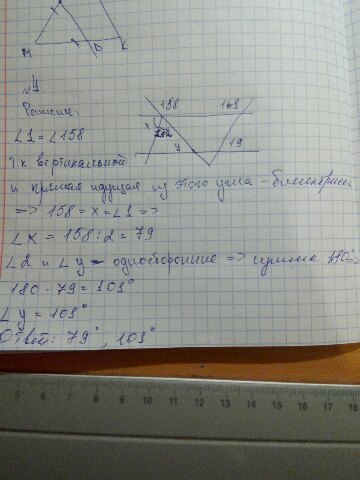 M В K
№4
Решение:
158 163
∠1 = ∠158
x
у 19
т.к вертикальной
и прямая идущая из этого угла - биссектриса
=> 158 = x = ∠1 =>
∠x = 158:2 = 79
∠2 и ∠y - односторонние => сумма 180° =>
180 - 79 = 101°
∠y = 101°
Ответ: 79°, 101°
5 6 7 8 9 10 11 12 13 14 15 16 17 18